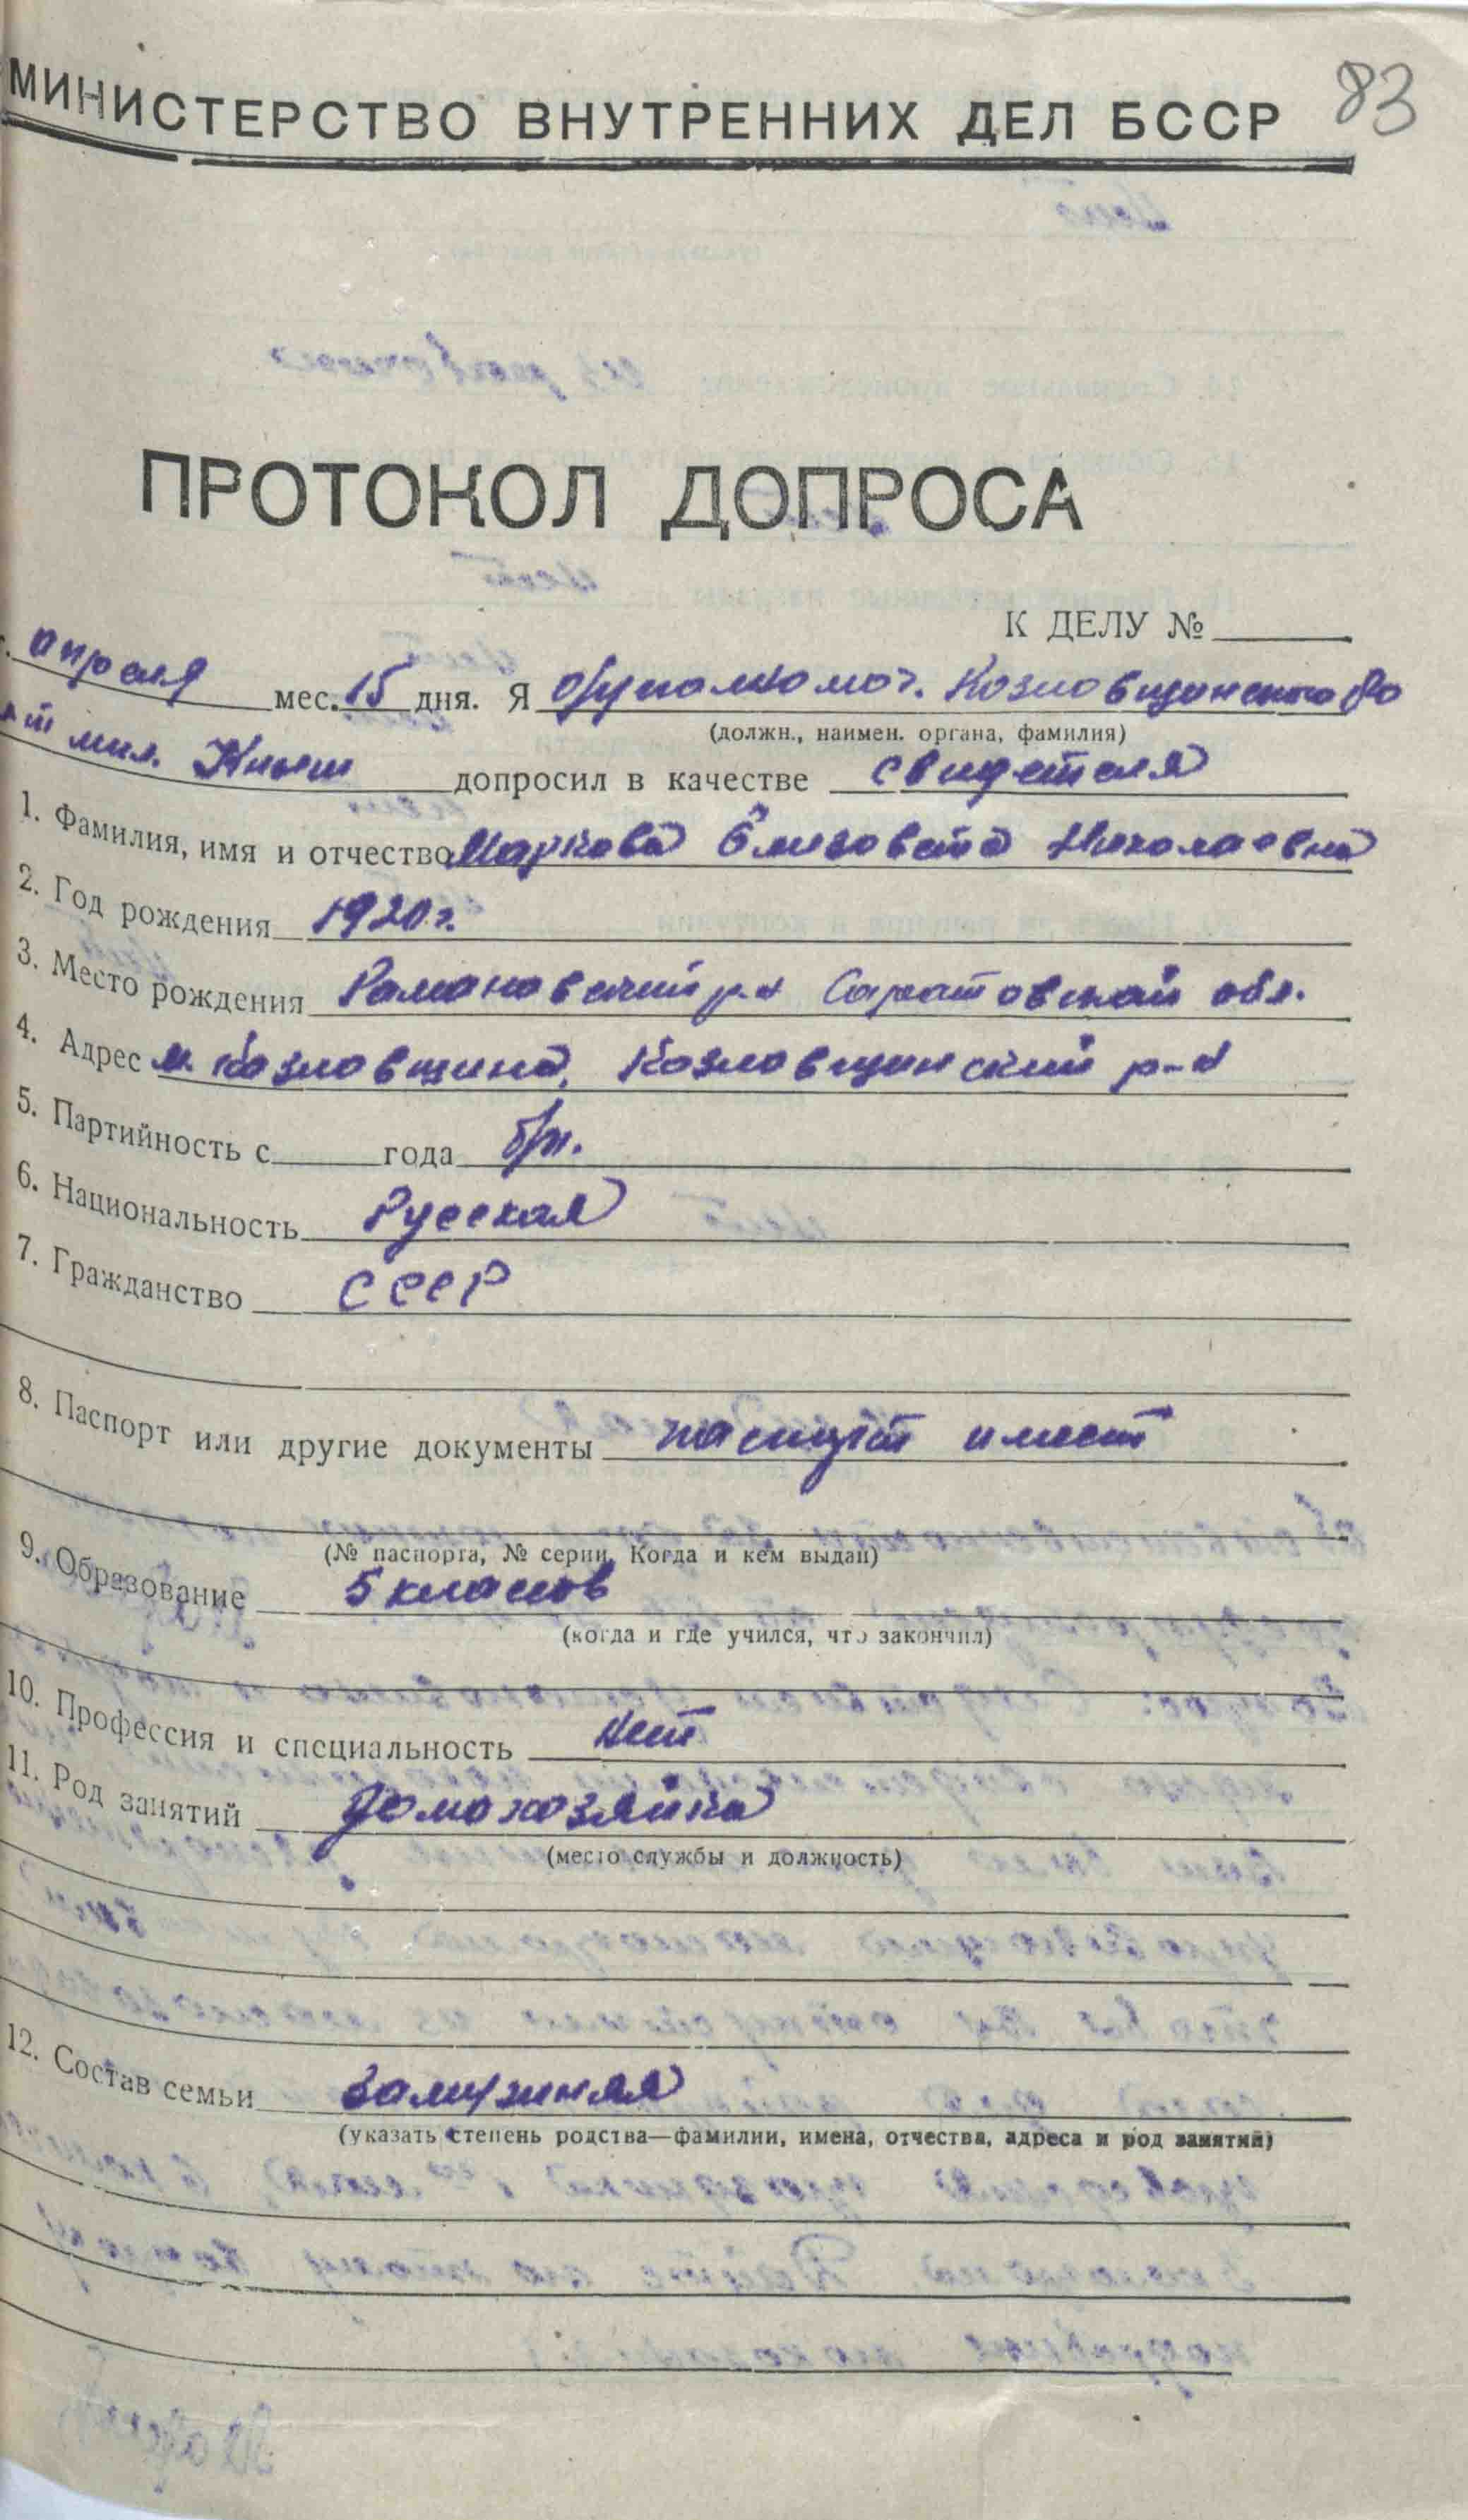 83
МИНИСТЕРСТВО ВНУТРЕННИХ ДЕЛ БССР
ПРОТОКОЛ ДОПРОСА
К ДЕЛУ №
апреля мес. 15 дня. Я оруполномоч. Козловщинского РО
(должн., наимен. органа, фамилия)
мил. допросил в качестве свидетеля
1. Фамилия, имя и отчество Маркова Елизовета Николаевна
2. Год рождения 1920 г.
3. Место рождения Романовский р-н Саратовской обл.
4. Адрес м. Козловщина, Козловщинский р-н
5. Партийность с года б/п.
6. Национальность Русская
7. Гражданство СССР
8. Паспорт или другие документы паспорт имеет
(№ паспорта, № серии, Когда и кем выдан)
9. Образование 5 класов
(когда и где учился, что закончил)
10. Профессия и специальность нет
11. Род занятий домохозяйка
(место службы и должность)
12. Состав семьи замужняя
(указать степень родства—фамилии, имена, отчества, адреса и род занятий)